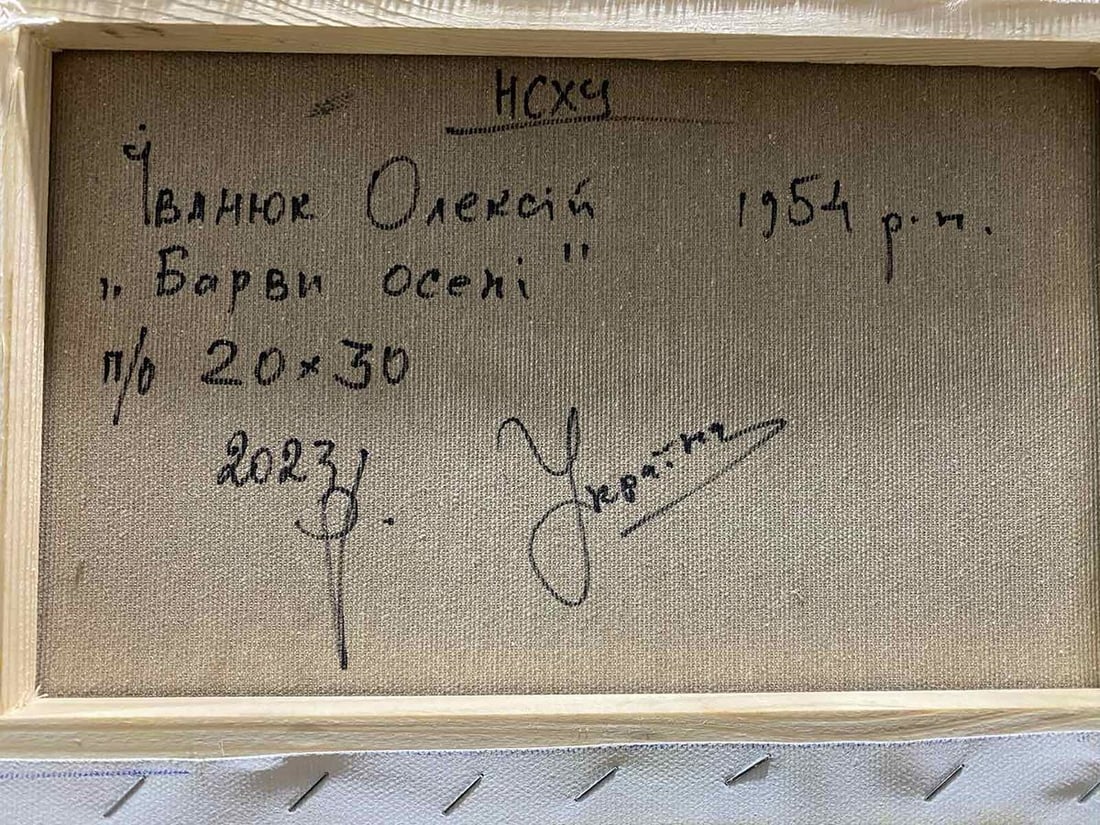 НСХУ
Іванюк Олексій 1954 р.н.
„Барви осені"
п/о 20×30
2023р.
Україна